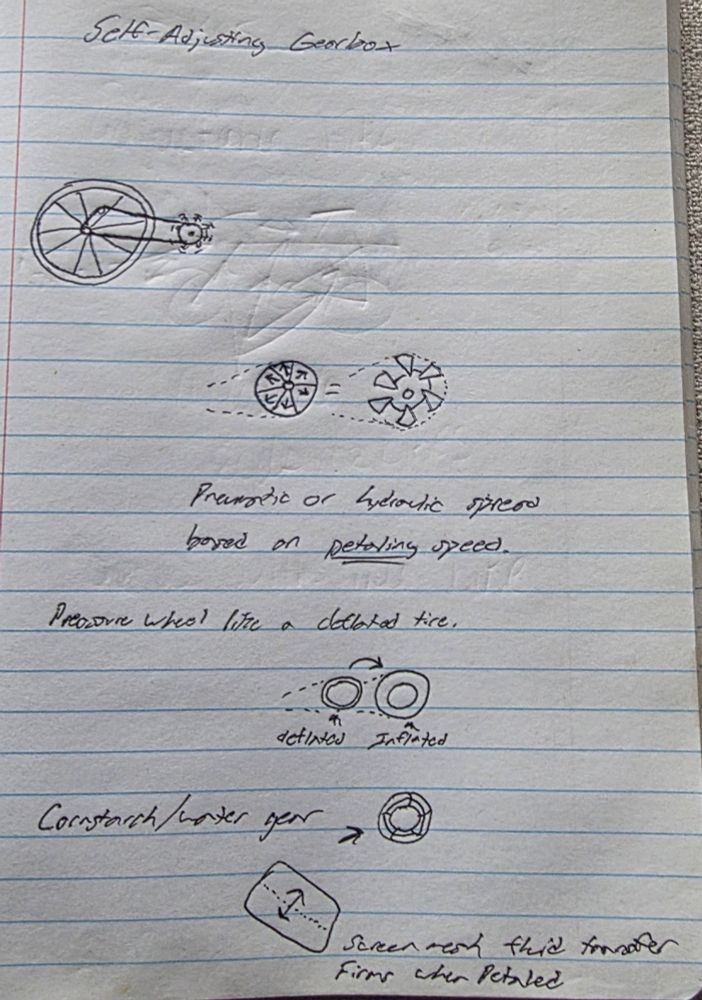 Self-Adjusting Gearbox
=
Pneumatic or hydraulic spread
based on petaling speed.
Pressure wheel like a deflated tire.
deflated Inflated
Cornstarch/water gear
Screen mesh fluid transfer
Firms when Petaled